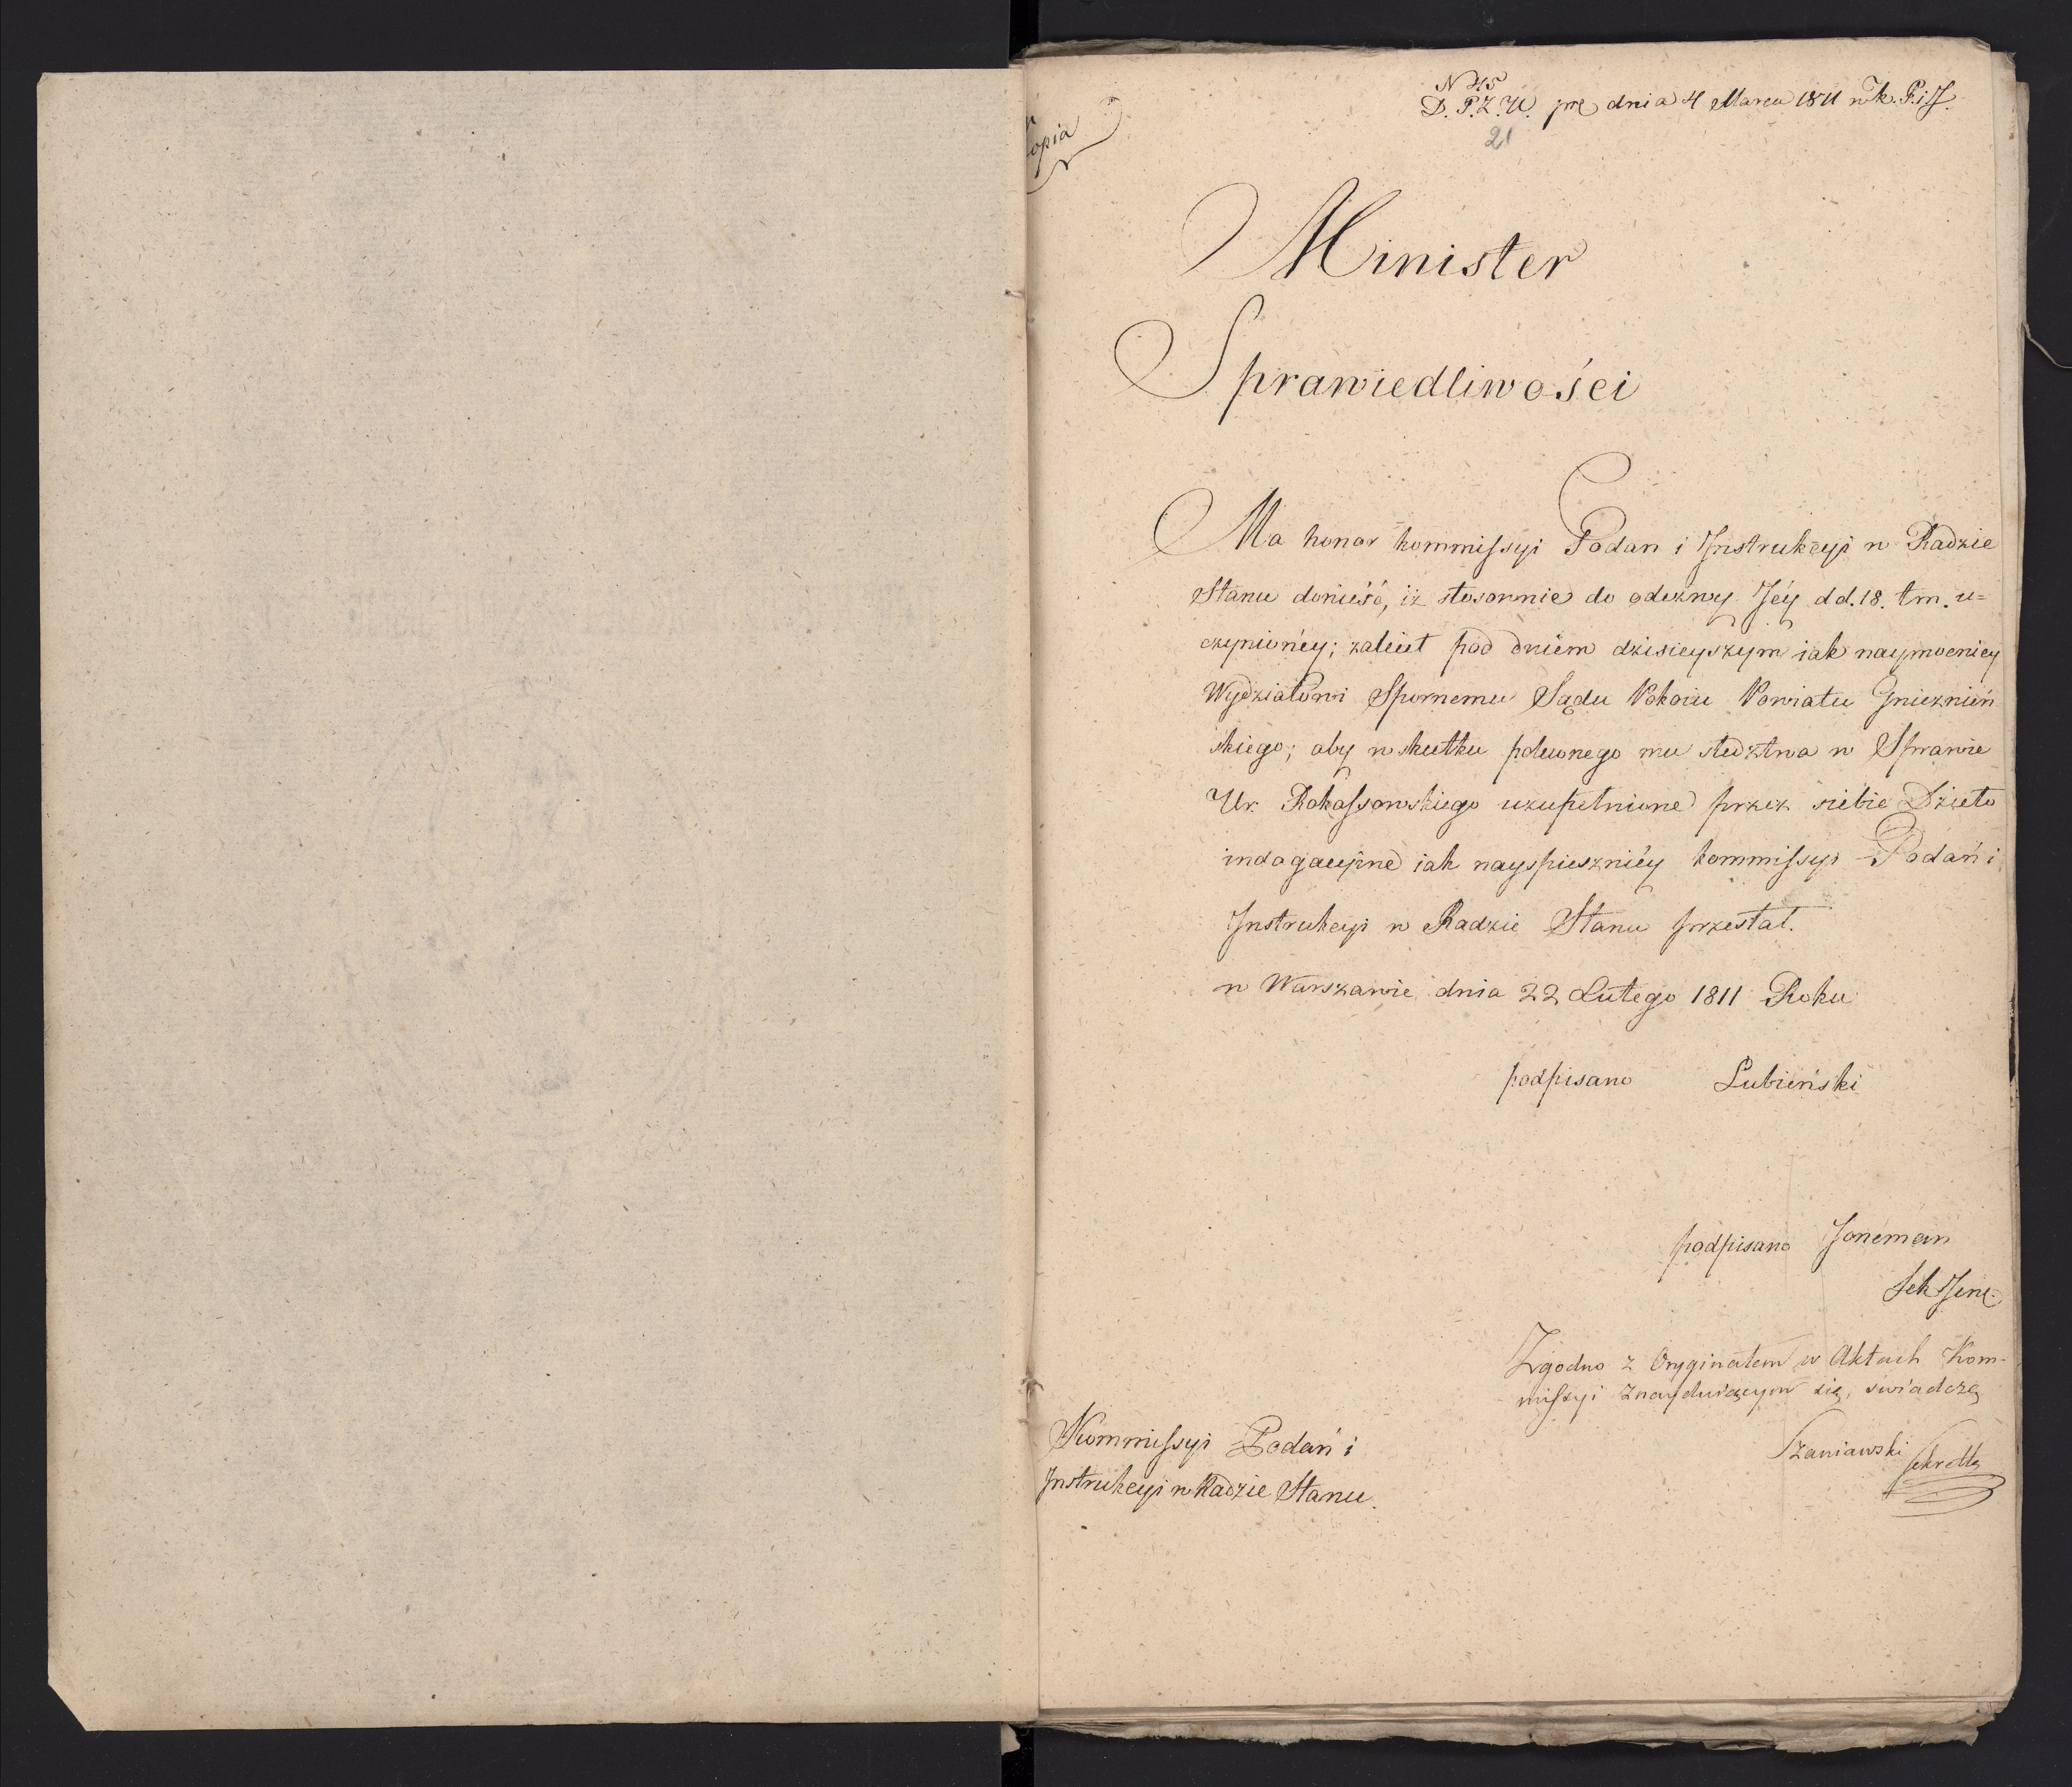 N 45
D. P.Z.U. pre dnia 4 Marca 1811 w k. P. i J.
21
opia
Minister
Sprawiedliwości
Ma honor kommissyi Podan i Instrukcyi w Radzie
Stanu donieść, iż stosownie do odezwy Jéy dd. 18. tm. u=
czynionéy; zalecił pod dniem dzisieyszym iak naymocniéy
Wydziałowi Spornemu Sądu Pokoiu Powiatu Gnieznień
skiego; aby w skutku poleconego mu śledztwa w Sprawie
Ur. Rokassowskiego uzupełnione przez siebie Dzieło
indagacyine iak nayspieszniéy kommissyi Podań i
Instrukcyi w Radzie Stanu przesłał.
w Warszawie dnia 22 Lutego 1811 Roku
podpisano Lubieński
podpisano Joneman
Sek Jene.
Zgodno z Oryginałem w Aktach Kom-
missyi znayduiącym się, świadczę
Szaniawski Sekretz
Kommissyi Podań i
Instrukcyi w Radzie Stanu.